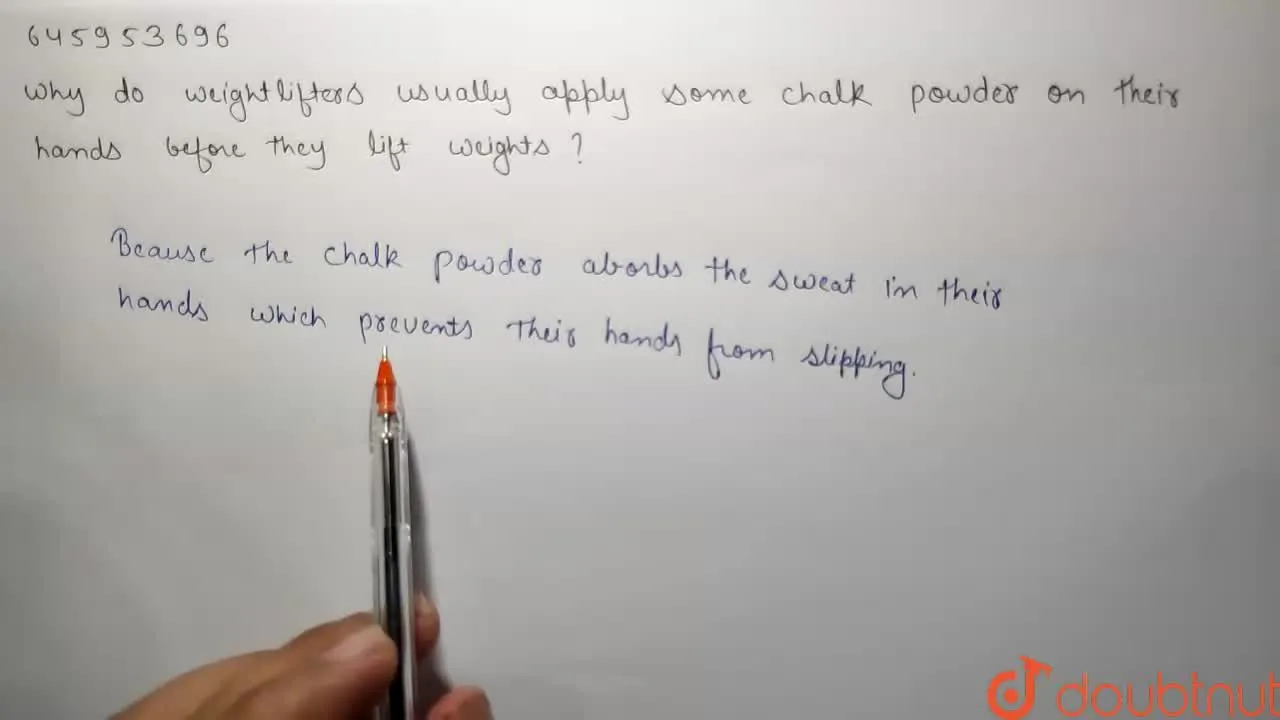 645953696
Why do weightlifters usually apply some chalk powder on their
hands before they lift weights ?
Beause the chalk powder aborbs the sweat in their
hands which prevents their hands from slipping.
doubtnut